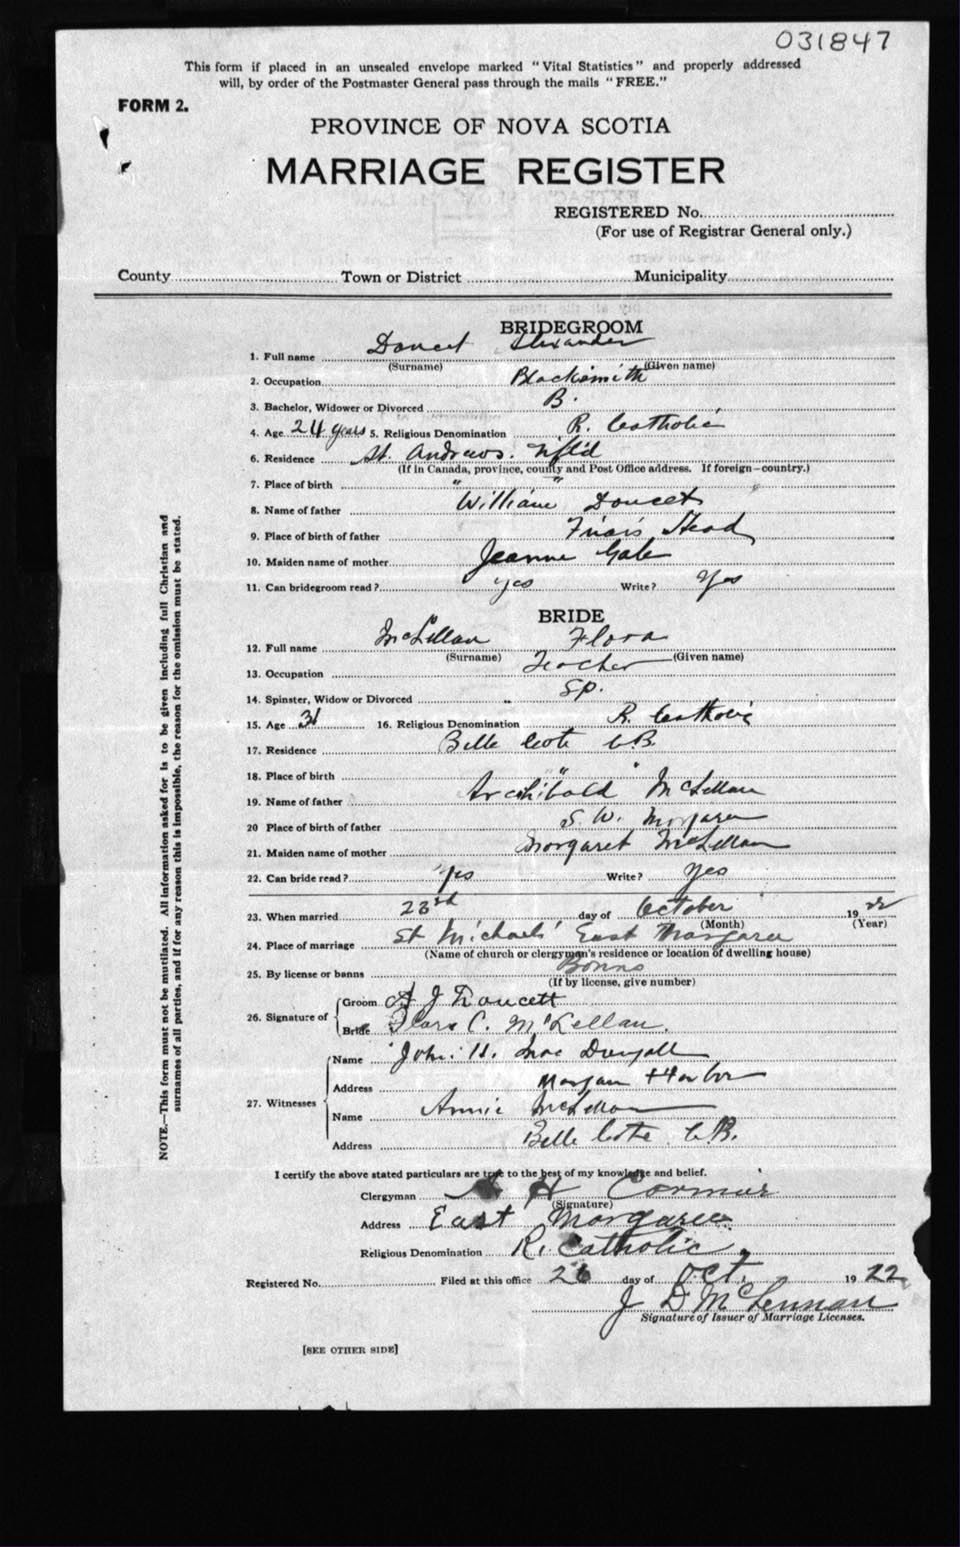 031847
This form if placed in an unsealed envelope marked "Vital Statistics" and properly addressed
will, by order of the Postmaster General pass through the mails "FREE."
FORM 2.
PROVINCE OF NOVA SCOTIA
MARRIAGE REGISTER
REGISTERED No.
(For use of Registrar General only.)
County Town or District Municipality
BRIDEGROOM
1. Full name Doucet Alexander
(Surname) (Given name)
2. Occupation Blacksmith
3. Bachelor, Widower or Divorced B.
4. Age 24 years 5. Religious Denomination R. Catholic
6. Residence St. Andrews. Nfl'd
(If in Canada, province, county and Post Office address. If foreign—country.)
7. Place of birth " "
8. Name of father William Doucet
9. Place of birth of father Friars Head
10. Maiden name of mother Jeanne Gale
11. Can bridegroom read? yes Write? Yes
BRIDE
12. Full name McLellan Flora
(Surname) (Given name)
13. Occupation Teacher
14. Spinster, Widow or Divorced Sp.
15. Age 31 16. Religious Denomination R. Catholic
17. Residence Belle Cote C.B.
18. Place of birth " "
19. Name of father Archibald McLellan
20 Place of birth of father S. W. Margaree
21. Maiden name of mother Margaret McLellan
22. Can bride read? Yes Write? Yes
23. When married 23rd day of October 1922
(Month) (Year)
24. Place of marriage St Michaels' East Margaree
(Name of church or clergyman's residence or location of dwelling house)
25. By license or banns Banns
(If by license, give number)
26. Signature of Groom A J Doucett
Bride Flora C. McLellan.
27. Witnesses Name John H. MacDougall
Address Margaree Harbor
Name Annie McLellan
Address Belle Cote C.B.
I certify the above stated particulars are true to the best of my knowledge and belief.
Clergyman A H Cormier
(Signature)
Address East Margaree
Religious Denomination R. Catholic
Registered No. Filed at this office 26 day of Oct. 1922
J D McLennan
Signature of Issuer of Marriage Licenses.
[SEE OTHER SIDE]
NOTE.—This form must not be mutilated. All information asked for is to be given including full Christian and
surnames of all parties, and if for any reason this is impossible, the reason for the omission must be stated.